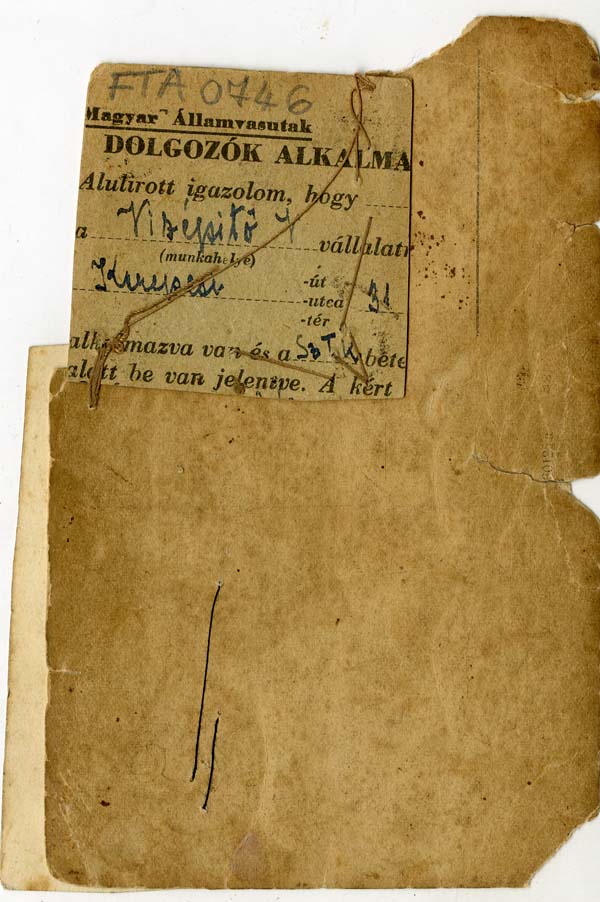 FTA 0746
Magyar Államvasutak
DOLGOZÓK ALKALMA
Alulirott igazolom, hogy
a Vizépitő V vállalatn
(munkahelye)
Kerepesi -út
-utca 31
-tér
alkalmazva van és a SzTK bete
alatt be van jelentve. A kért